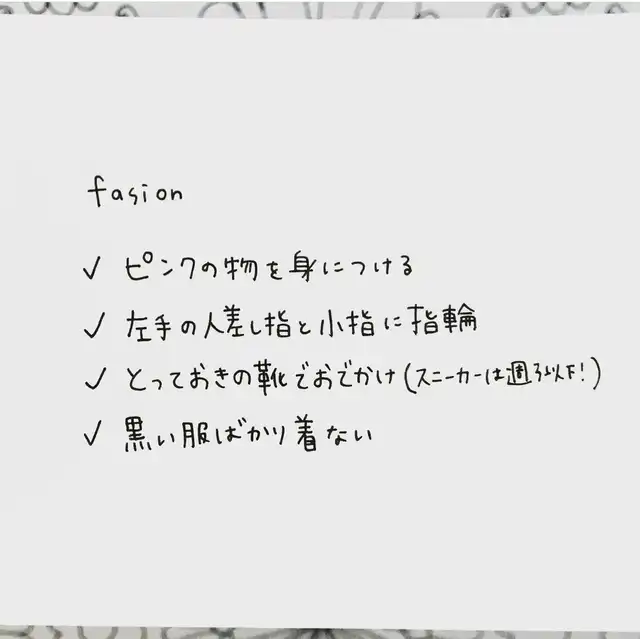 fasion
✓ ピンクの物を身につける
✓ 左手の人差し指と小指に指輪
✓ とっておきの靴でおでかけ(スニーカーは週3以下!)
✓ 黒い服ばかり着ない